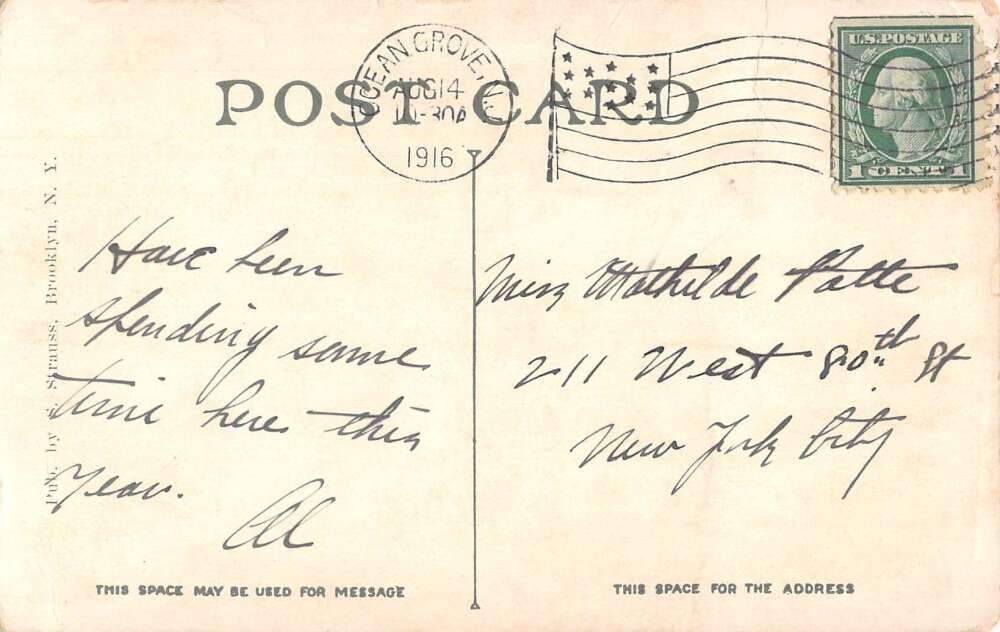 POST CARD
OCEAN GROVE, N.J.
AUG 14
1916
U.S. POSTAGE
1 CENT 1
Pub. by Strauss, Brooklyn, N. Y.
Have been
spending some
time here this
year.
Al
Miss Mathilde Patte
211 West 80th St
New York City
THIS SPACE MAY BE USED FOR MESSAGE
THIS SPACE FOR THE ADDRESS